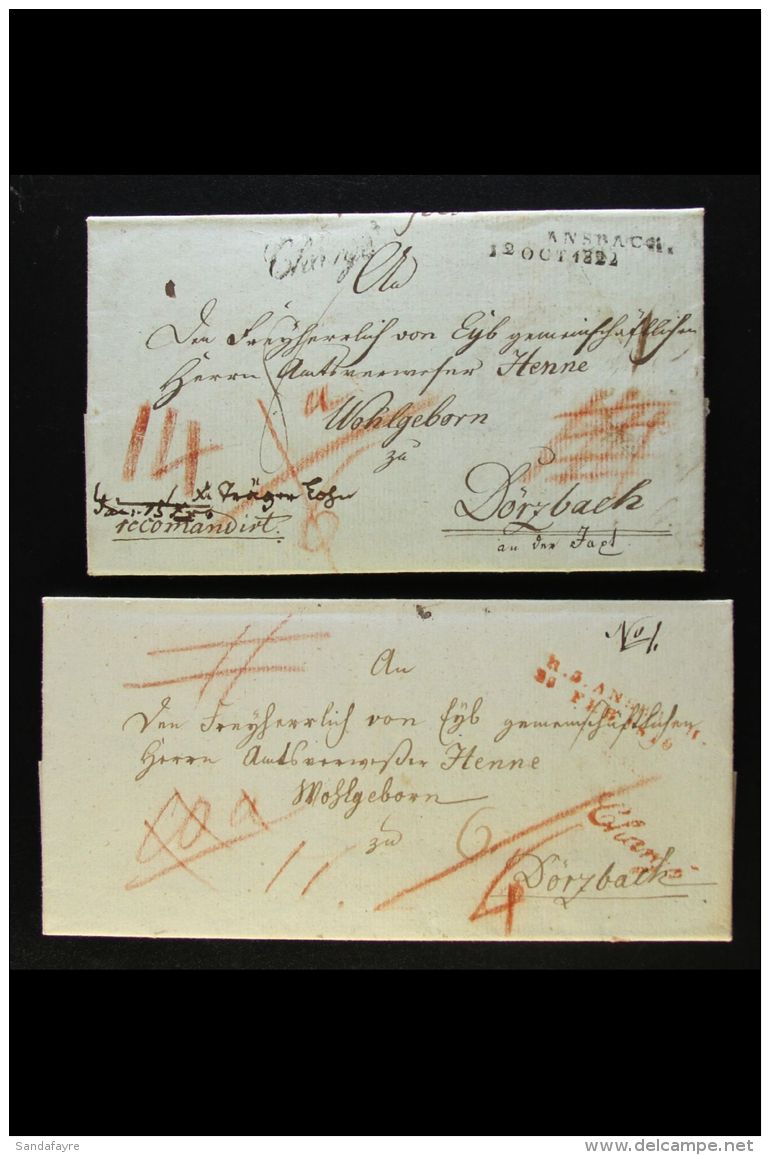 Chargé
ANSBACH.
12 OCT 1822
An
Den Freyherrlich von Eyb gemeinschäftlichen
Herrn Amtsverweser Henne
Wohlgeborn
zu
14
Träger Lohn
recomandirt.
Dörzbach
an der Jaxt
No 1.
An
Den Freyherrlich von Eyb gemeinschaftlichen
Herrn Amtsverweßer Henne
Wohlgeborn
zu
6
Chargé
4
Dörzbach
Sandafayre
delcampe.net